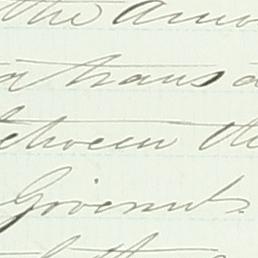 the Amo
a transa
between the
Goverment